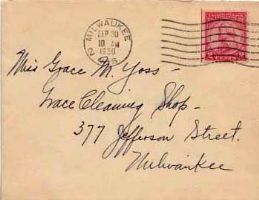 MILWAUKEE
SEP 30
10 AM
1930
WIS
2
Miss Grace M. Yoss -
Grace Cleaning Shop -
377 Jefferson Street.
Milwaukee